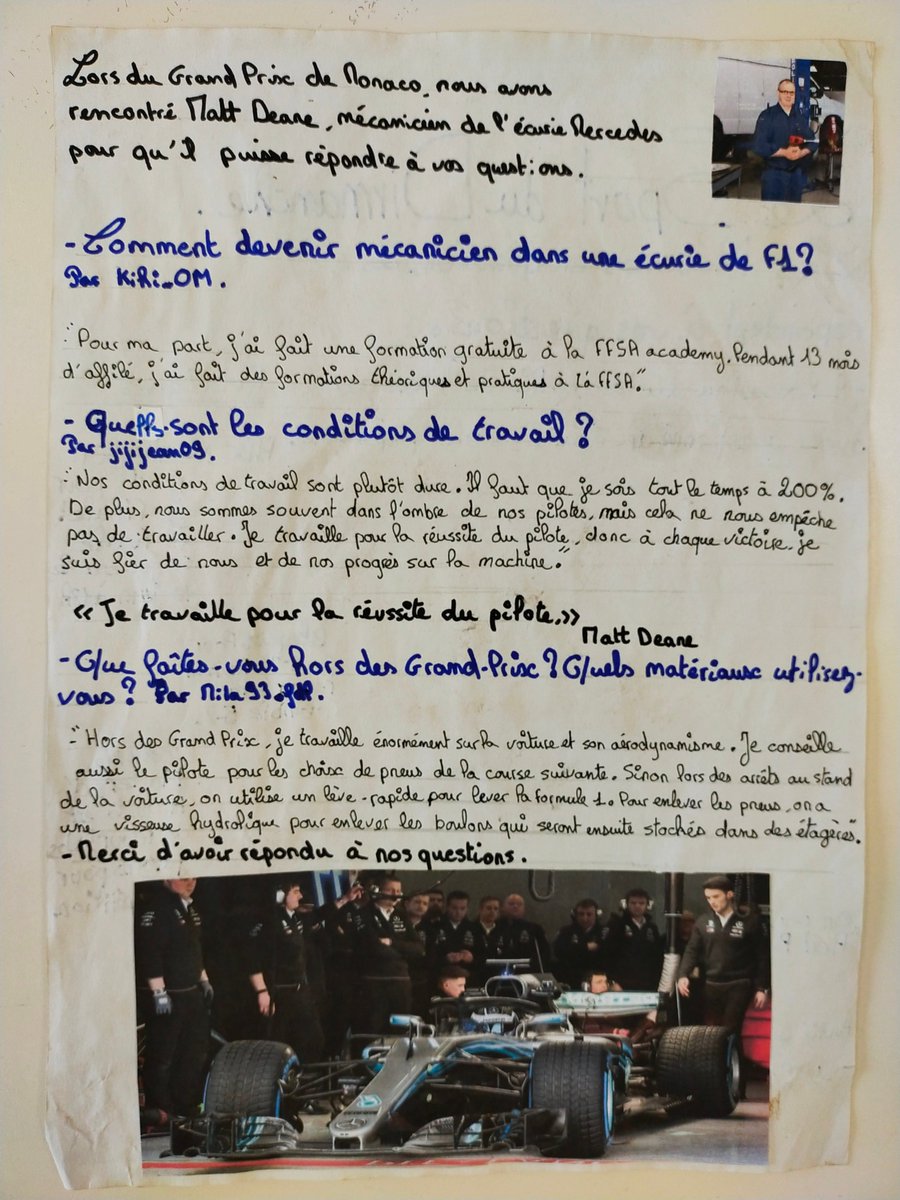 Lors du Grand Prix de Monaco, nous avons
rencontré Matt Deane, mécanicien de l'écurie Mercedes
pour qu'il puisse répondre à vos questions.
- Comment devenir mécanicien dans une écurie de F1?
Par Kiki_OM.
"Pour ma part, j'ai fait une formation gratuite à la FFSA academy. Pendant 13 mois
d'affilé, j'ai fait des formations théoriques et pratiques à la FFSA."
- Quelles sont les conditions de travail ?
Par jijijean09.
"Nos conditions de travail sont plutôt dure. Il faut que je sois tout le temps à 200%.
De plus, nous sommes souvent dans l'ombre de nos pilotes, mais cela ne nous empêche
pas de travailler. Je travaille pour la réussite du pilote, donc à chaque victoire, je
suis fier de nous et de nos progrès sur la machine."
« Je travaille pour la réussite du pilote.»
Matt Deane
- Que faîtes-vous hors des Grand-Prix ? Quels matériaux utilisez-
vous ? Par
"Hors des Grand Prix, je travaille énormément sur la voiture et son aérodynamisme. Je conseille
aussi le pilote pour les choix de pneus de la course suivante. Sinon lors des arrêts au stand
de la voiture, on utilise un lève-rapide pour lever la formule 1. Pour enlever les pneus, on a
une visseuse hydrolique pour enlever les boulons qui seront ensuite stockés dans des étagères".
- Merci d'avoir répondu à nos questions.